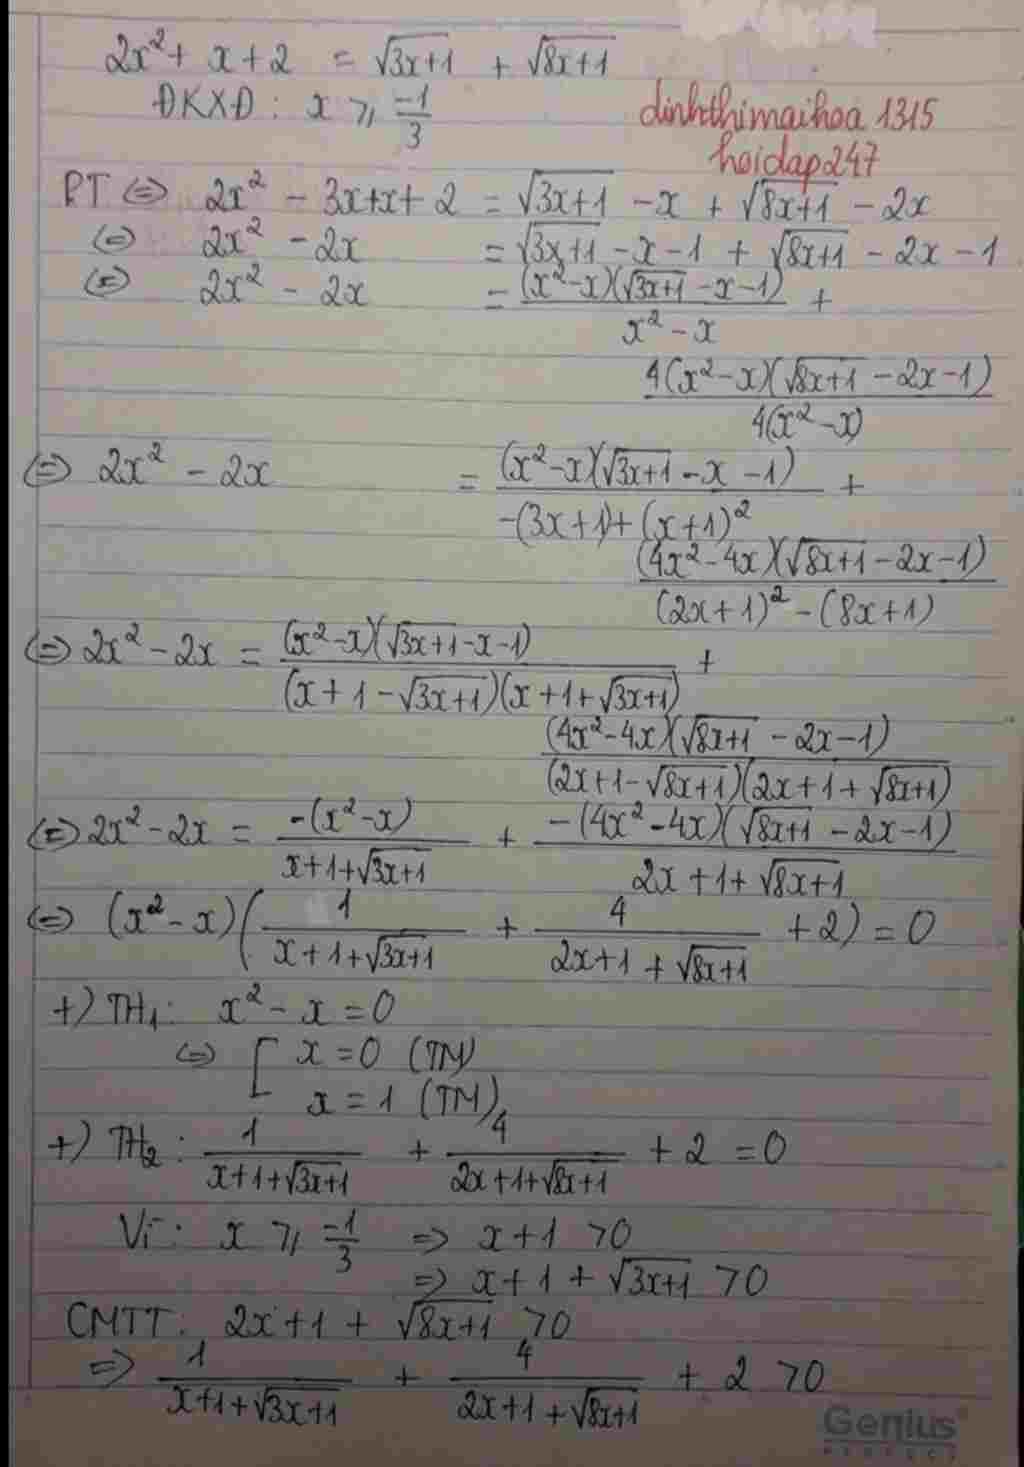 2x² + x + 2 = √(3x+1) + √(8x+1)
ĐKXĐ : x ⩾ -1/3
dinhthimaihoa 1315
hoidap247
PT ⇔ 2x² - 3x + x + 2 = √(3x+1) - x + √(8x+1) - 2x
⇔ 2x² - 2x = √(3x+1) - x - 1 + √(8x+1) - 2x - 1
⇔ 2x² - 2x = (x²-x)(√(3x+1) - x - 1) / (x² - x) +
4(x²-x)(√(8x+1) - 2x - 1) / 4(x²-x)
⇔ 2x² - 2x = (x²-x)(√(3x+1) - x - 1) / (-(3x+1) + (x+1)²) +
(4x²-4x)(√(8x+1) - 2x - 1) / ((2x+1)² - (8x+1))
⇔ 2x² - 2x = (x²-x)(√(3x+1) - x - 1) / ((x + 1 - √(3x+1))(x + 1 + √(3x+1))) +
(4x²-4x)(√(8x+1) - 2x - 1) / ((2x+1 - √(8x+1))(2x + 1 + √(8x+1)))
⇔ 2x² - 2x = -(x²-x) / (x+1+√(3x+1)) + -(4x²-4x)(√(8x+1) - 2x - 1) / (2x + 1 + √(8x+1))
⇔ (x² - x)(1 / (x+1+√(3x+1)) + 4 / (2x+1+√(8x+1)) + 2) = 0
+) TH₁ : x² - x = 0
⇔ [ x = 0 (TM)
x = 1 (TM)
+) TH₂ : 1 / (x+1+√(3x+1)) + 4 / (2x+1+√(8x+1)) + 2 = 0
Vì : x ⩾ -1/3 ⇒ x + 1 > 0
⇒ x + 1 + √(3x+1) > 0
CMTT : 2x + 1 + √(8x+1) > 0
⇒ 1 / (x+1+√(3x+1)) + 4 / (2x+1+√(8x+1)) + 2 > 0
Genius